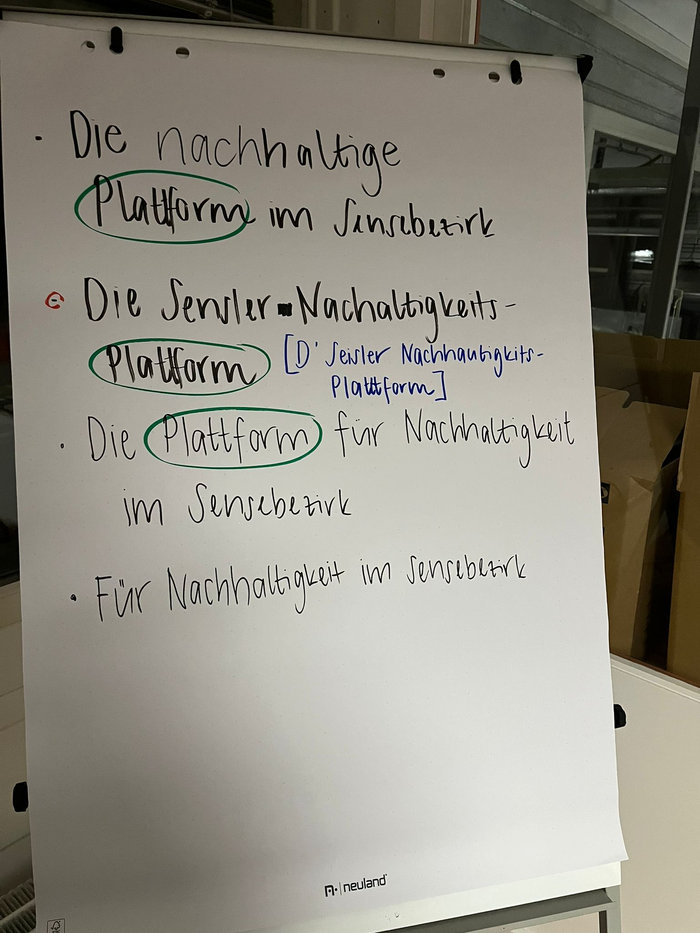 · Die nachhaltige
Plattform im Sensebezirk
Die Sensler-Nachaltigkeits-
Plattform [D' Seisler Nachhautigkits-
Plattform]
· Die Plattform für Nachhaltigkeit
im Sensebezirk
· Für Nachhaltigkeit im Sensebezirk
neuland